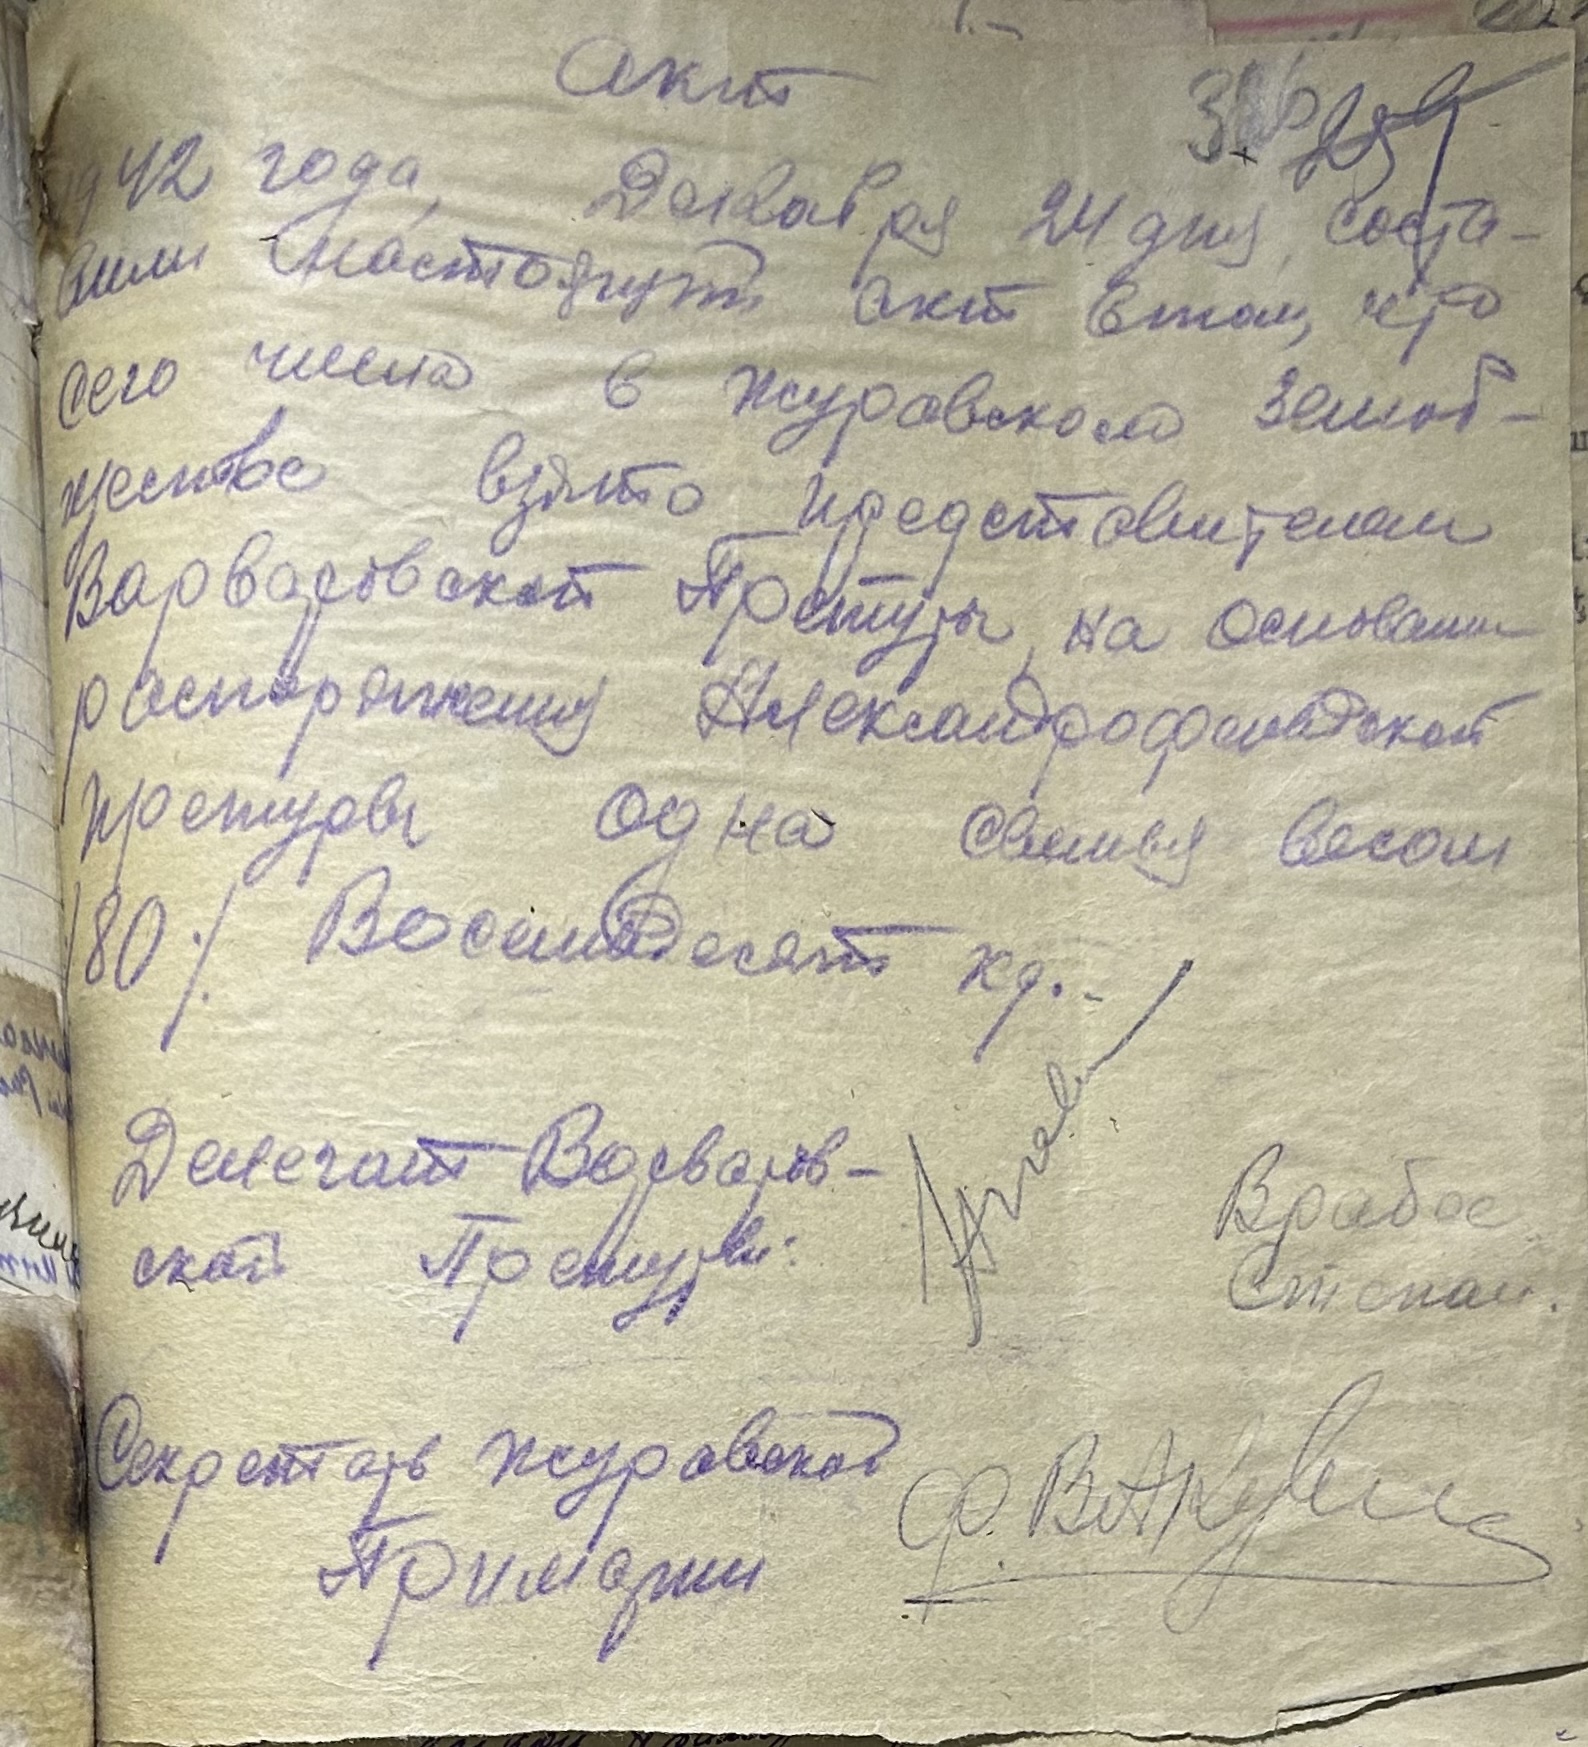 Акт
1942 года, Декабря 24 дня, соста-
вили настоящий акт в том, что
сего числа в Журавском земоб-
ществе взято представителем
Варваровской Претуры, на основании
распоряжения Александрофельдской
претуры одна свинья весом
/80/ Восемьдесят кг.
Делегат Варваров-
ской Претуры:
Врабее
Степан.
Секретарь Журавской
Примарии
Ф. Вакул